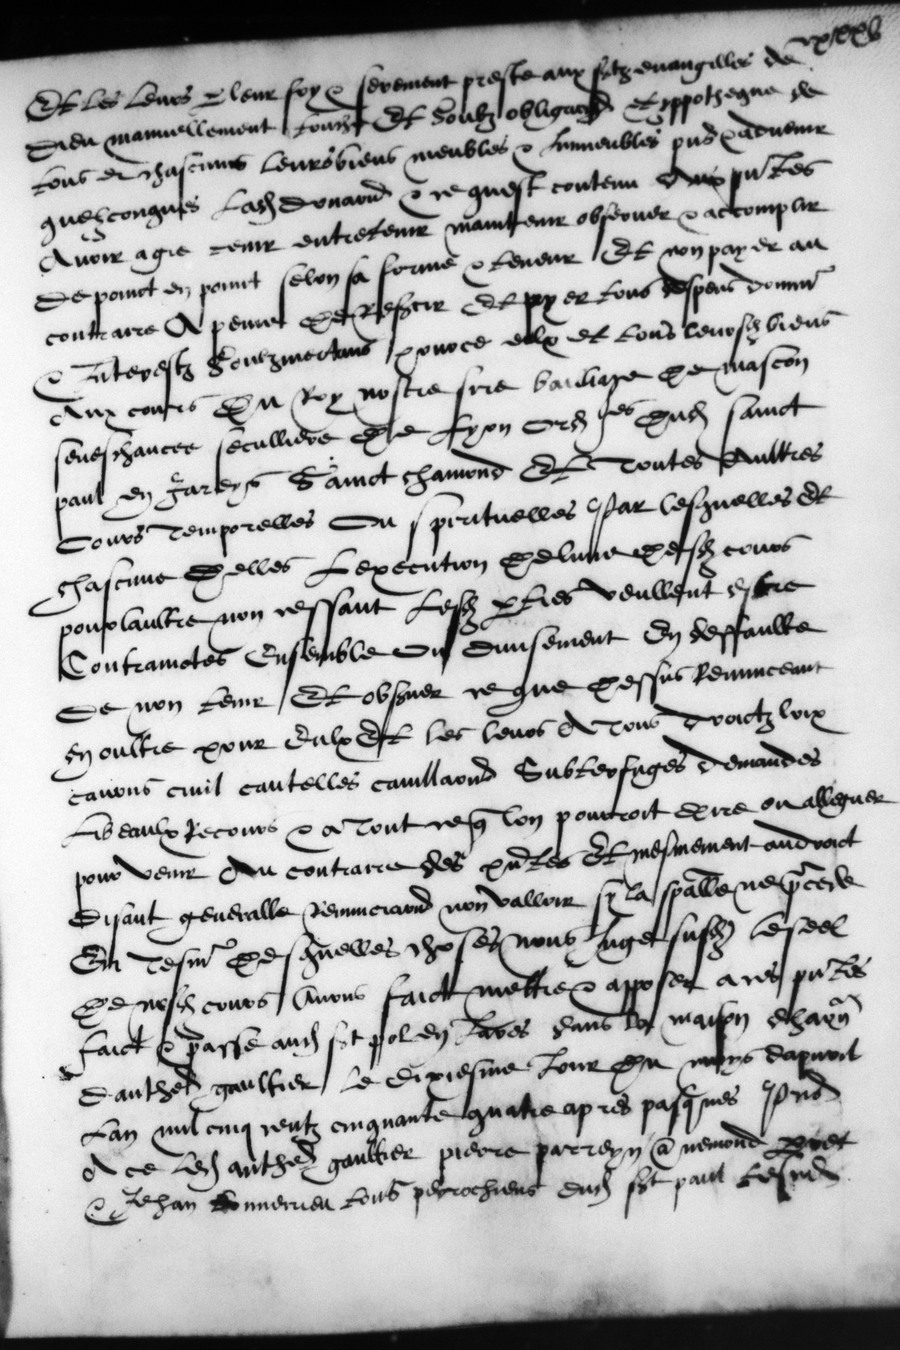 Et les leurs p leur foy & serement preste aux sctz evangilles de
Dieu manuellement touche Et soubz obligaon Et yppotheque de
tous et chascuns leurs biens meubles & Inmeubles pns & advenir
quelzconques Lad donaon & ce quest contenu aux pntes
Avoir agre tenir entretenir maintenir observer & accomplir
De poinct en poinct selon sa forme & teneur Et non payer au
contraire A peine De Refscir Et payer tous despens domm
& Interestz Soubzmectans pource eulx et tous leursd biens
Aux cours Du Roy nostre sire bailliage De mascon
seneschaucee seculliere De Lyon ord dud sainct
paul en Jareys Sainct chamond Et Toutes Aultres
Cours Temporelles Ou spirituelles Par lesquelles Et
chascune Delles Lexecution De lune desd cours
pour laultre non cessant Lesd pties veullent estre
Contrainctes Ensemble Ou Divisement En deffaulte
De non tenir Et observer ce que Dessus Renunceant
En oultre pour Eulx Et les leurs A Tous Droictz loix
canons civil cautelles cauillaons Subterfuges Demandes
Libeaulx Recours & a Tout ce q lon pourroit Dire ou alleguer
pour venir Au contraire des pntes Et mesmement au droict
Disant generalle Renunciaon non valloir sy la spalle ne precede
En Tesm Desquelles choses nous Juge susd Le seel
De nosd cours Avons faict mettre & apposer a ces pntes
faict & passe aud sct pol en Jares dans la maison dhaon
Danthed gaultier Le Dixiesme Jour Du moys dapvril
Lan mil cinq centz cinquante quatre apres pasques Pns
A ce Led anthed gaultier pierre parreyn @nemond
& Jehan tous perrochiens dud sct paul tesmd